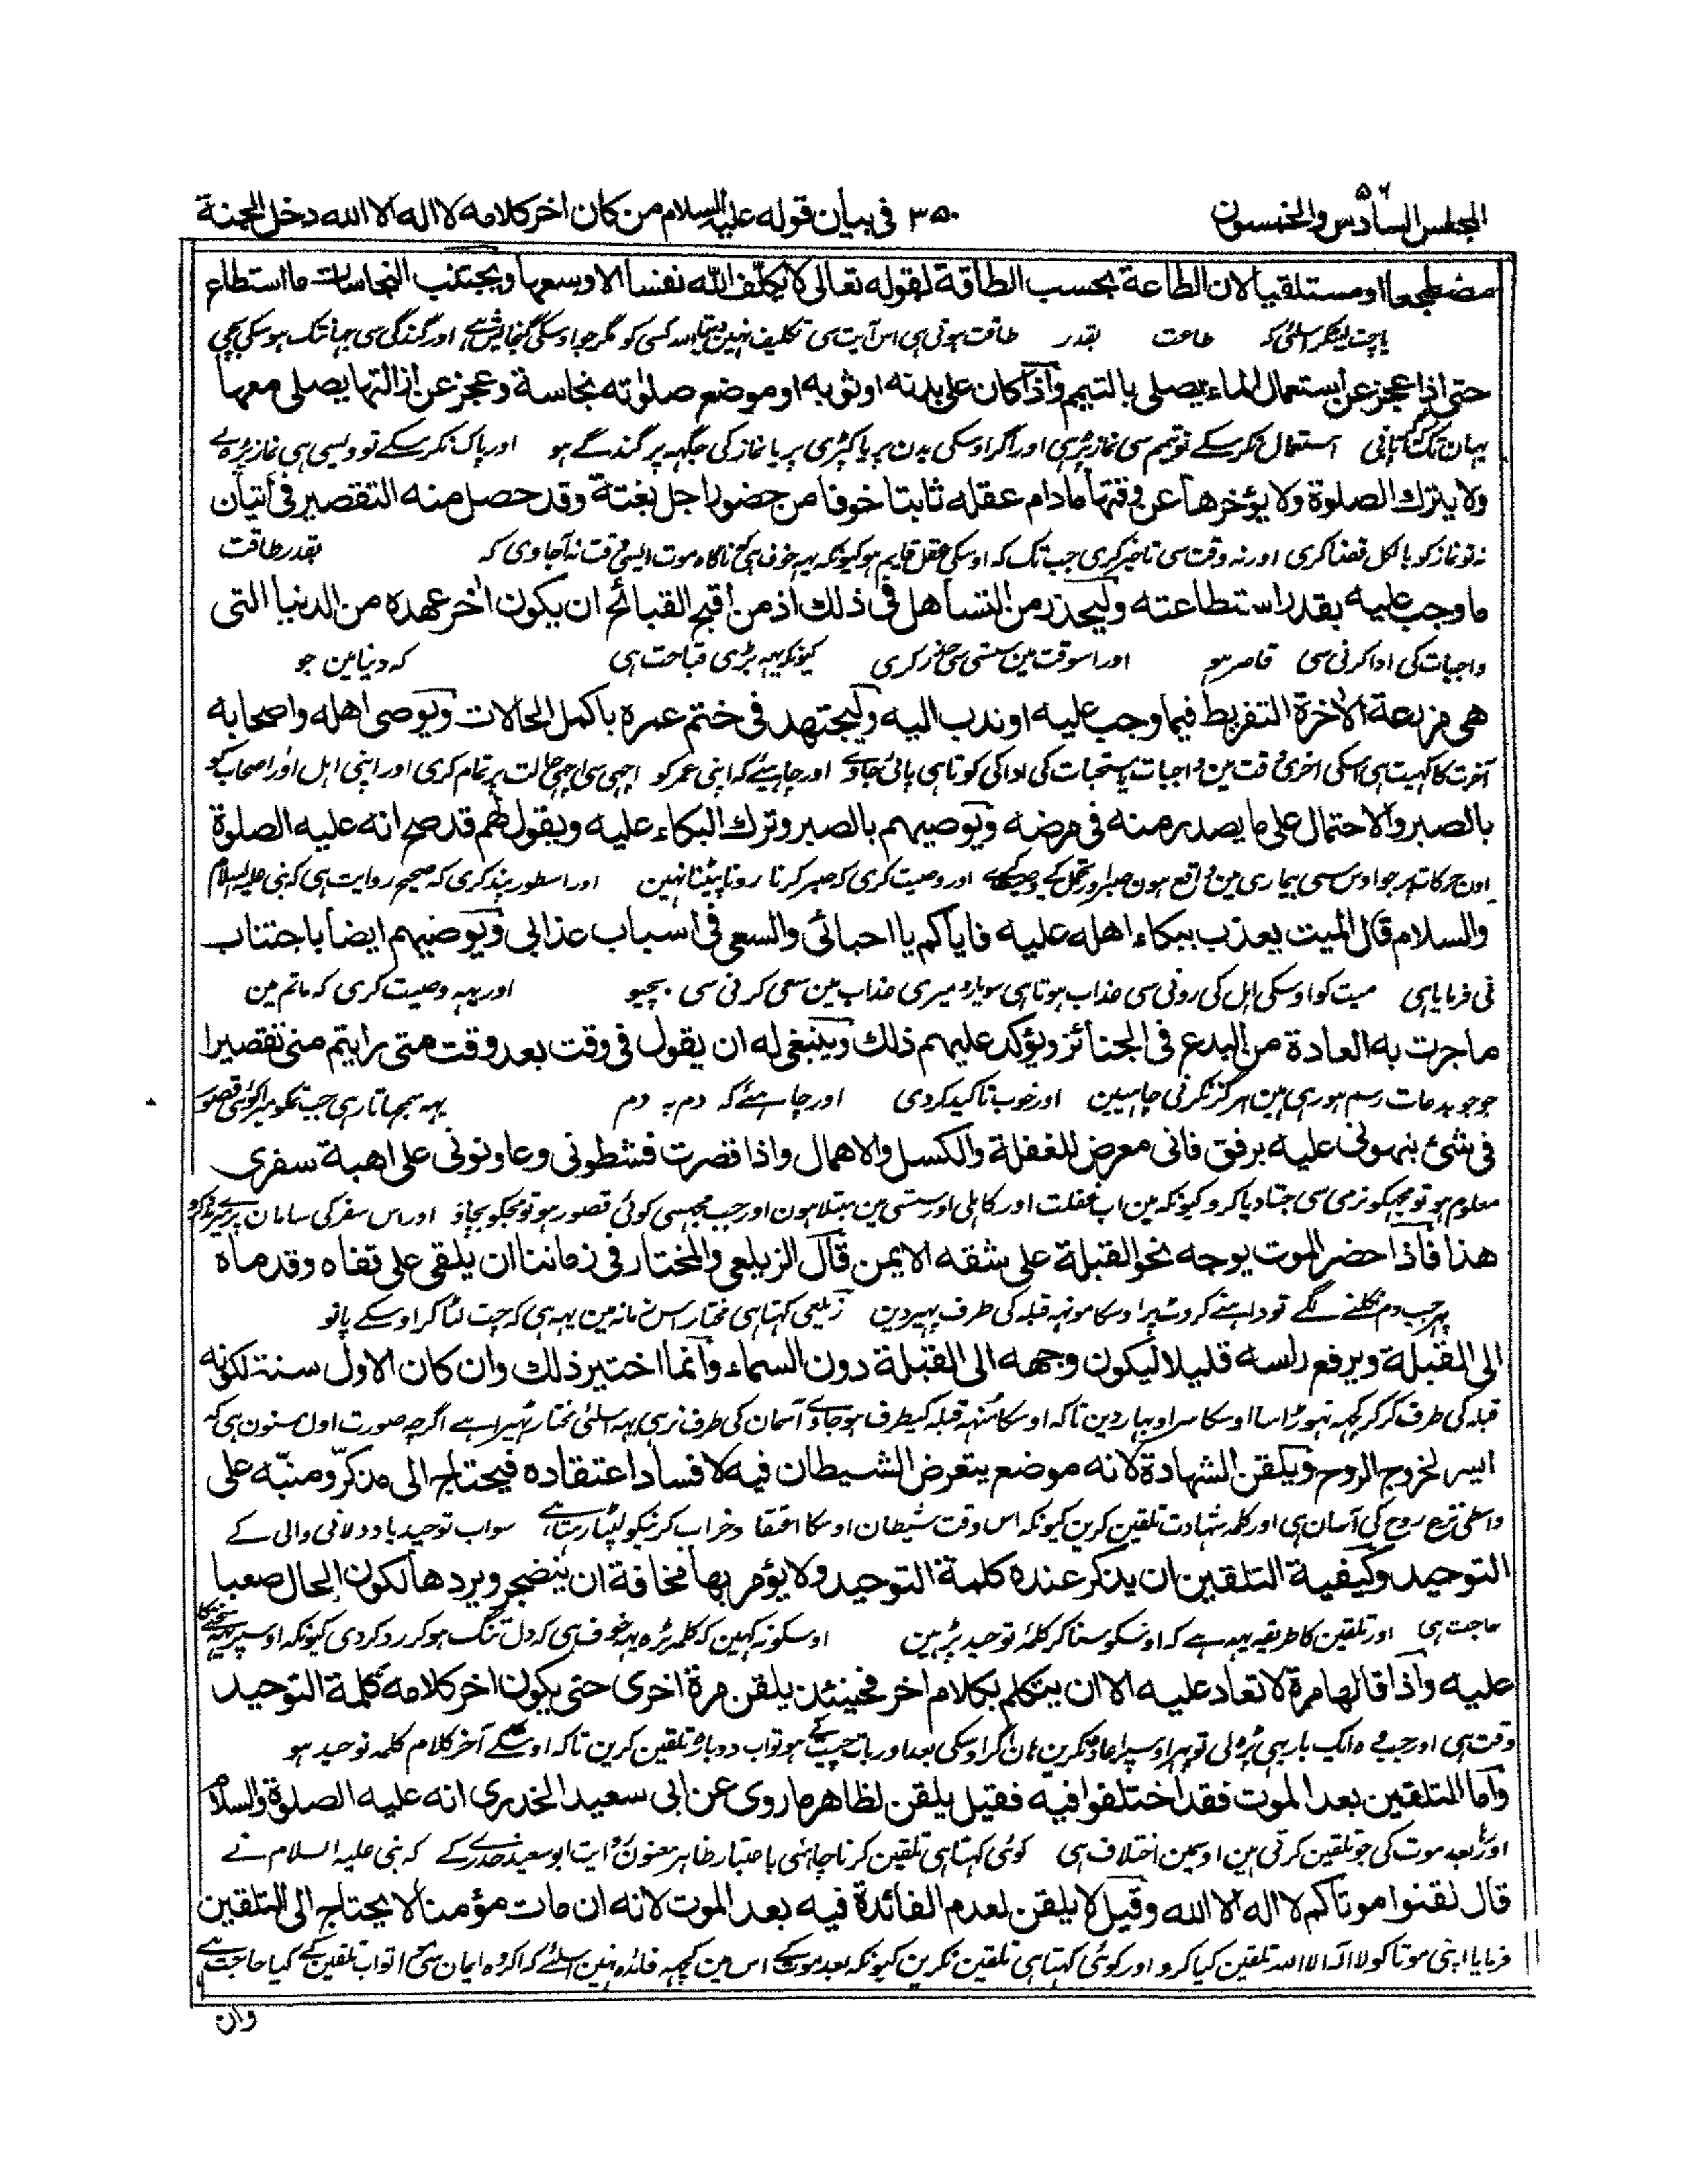 المجلس السادس والخمسون ۵۶ ۳۵۰ فی بیان قوله علیه السلام من کان اخر کلامه لا اله الا الله دخل الجنة
مضطجعا او مستلقیا لان الطاعة بحسب الطاقة لقوله تعالی لا یکلف الله نفسا الا وسعها ویجتنب النجاسات ما استطاع
یا چت لیٹکر اسلئی کہ طاعت بقدر طاقت ہوتی ہی اس آیت سی تکلیف نہین دیتا اللہ کسی کو مگر جو اوسکی گنجایش ہے اور گندگی سی جہانتک ہو سکی بچی
حتی اذا عجز عن استعمال الماء یصلی بالتیمم واذا کان علی بدنه او ثوبه او موضع صلوته نجاسة وعجز عن ازالتها یصلی معها
یہان تک کہ اگر پانی استعمال نکر سکے تو تیمم سی نماز پڑہی اور اگر اوسکی بدن پر یا کپڑی پر یا نماز کی جگہہ پر گندگے ہو اور پاک نکر سکے تو ویسی ہی نماز پڑہے
ولا یترك الصلوة ولا یؤخرها عن وقتها مادام عقله ثابتا خوفا من حضور اجل بغتة وقد حصل منه التقصیر فی اتیان
نہ تو نماز کو بالکل قضا کری اور نہ وقت سی تاخیر کری جب تک کہ اوسکی عقل قایم ہو کیونکہ یہہ خوف ہی کہ ناگاہ موت ایسی وقت نہ آجاوی کہ بقدر طاقت
ما وجب علیه بقدر استطاعته ولیحذر من التساهل فی ذلك اذ من اقبح القبائح ان یکون اخر عهده من الدنیا التی
واجبات کی ادا کرنی سی قاصر ہو اور اسوقت مین سستی سی حذر کری کیونکہ یہہ بڑی قباحت ہی کہ دنیا مین جو
هی مزرعة الاخرة التفریط فیما وجب علیه او ندب الیه ولیجتهد فی ختم عمره باکمل الحالات ویوصی اهله واصحابه
آخرت کا کہیت ہی اسکی اخری وقت مین واجبات یا مستحبات کی ادا کی کوتاہی پائی جاوے اور چاہیئے کہ اپنی عمر کو اچہی سی اچہی حالت پر تمام کری اور اپنی اہل اور اصحاب کو
بالصبر والاحتمال علی ما یصدر منه فی مرضه ویوصیهم بالصبر وترك البکاء علیه ویقول لهم قد صح انه علیه الصلوة
اون حرکات پر جو اوس سی بیماری مین واقع ہون صبر اور تحمل کی وصیت کرے اور وصیت کری کہ صبر کرنا رونا پیٹنا نہین اور اسطور پند کری کہ صحیح روایت ہی کہ نبی علیہ السلام
والسلام قال المیت یعذب ببکاء اهله علیه فایاکم یا احبائی والسعی فی اسباب عذابی ویوصیهم ایضا باجتناب
نی فرمایا ہی میت کو اوسکی اہل کی رونی سی عذاب ہوتا ہی سو یارو میری عذاب مین سعی کرنی سی بچیو اور یہہ وصیت کری کہ ماتم مین
ما جرت به العادة من البدع فی الجنائز ویؤکد علیهم ذلك وینبغی له ان یقول فی وقت بعد وقت متی رایتم منی تقصیرا
جو جو بدعات رسم ہو رہی ہین ہرگز نکرنی چاہیین اور خوب تاکید کردی اور چاہئے کہ دم بہ دم یہہ سمجھاتا رہی جب تمکو میرا کوئی قصور
فی شئ نبهونی علیه برفق فانی معرض للغفلة والکسل والاهمال واذا قصرت فنشطونی وعاونونی علی اهبة سفری
معلوم ہو تو مجہکو نرمی سی جتادیا کرو کیونکہ مین اب غفلت اور کاہلی اور سستی مین مبتلا ہون اور جب مجہسی کوئی قصور ہو تو مجکو بچاؤ اور اس سفر کی سامان پر میری مدد کرو
هذا فاذا حضر الموت یوجه نحو القبلة علی شقه الایمن قال الزیلعی والمختار فی زماننا ان یلقی علی قفاه وقدماه
پہر جب دم نکلنے لگے تو داہنے کروٹ پر اوسکا مونہہ قبلہ کی طرف پہیر دین زیلعی کہتا ہی مختار اس زمانہ مین یہہ ہی کہ چت لٹا کر اوسکے پانو
الی القبلة ویرفع راسه قلیلا لیکون وجهه الی القبلة دون السماء وانما اختیر ذلك وان کان الاول سنة لکونه
قبلہ کی طرف کر کر کچہہ تہوڑا سا اوسکا سر اوبہار دین تاکہ اوسکا منہہ قبلہ کیطرف ہو جاوے آسمان کی طرف نرہی یہہ اسلئی مختار ٹہیرا ہے اگرچہ صورت اول مسنون ہی کہ
ایسر لخروج الروح ویلقن الشهادة لانه موضع یتعرض الشیطان فیه لافساد اعتقاده فیحتاج الی مذکر ومنبه علی
واسطی نزع روح کی آسان ہی اور کلمہ شہادت تلقین کرین کیونکہ اس وقت شیطان اوسکا اعتقاد خراب کرنیکو لپٹا رہتا ہے سو اب توحید یاد دلانی والی کے
التوحید وکیفیة التلقین ان یذکر عنده کلمة التوحید ولا یؤمر بها مخافة ان یتضجر ویردها لکون الحال صعبا
حاجت ہی اور تلقین کا طریقہ یہہ ہے کہ اوسکو سنا کر کلمہ توحید پڑہین اوسکو نہ کہین کہ کلمہ پڑہ یہہ خوف ہی کہ دل تنگ ہو کر رد کردی کیونکہ اوسپر یہہ سختی کا
علیه واذا قالها مرة لا تعاد علیه الا ان یتکلم بکلام اخر فحینئذ یلقن مرة اخری حتی یکون اخر کلامه کلمة التوحید
وقت ہی اور جب وہ ایک بار بہی پڑہ لی تو پہر اوسپر اعادہ نکرین ہان اگر اوسکی بعد اور بات چیت کے ہو تو اب دوبارہ تلقین کرین تاکہ اوسکے آخر کلام کلمہ توحید ہو
واما التلقین بعد الموت فقد اختلفوا فیه فقیل یلقن لظاهر ما روی عن ابی سعید الخدری انه علیه الصلوة والسلام
اور بعد موت کی جو تلقین کرتی ہین اوسمین اختلاف ہی کوئی کہتا ہی تلقین کرنا چاہئی باعتبار ظاہر مضمون روایت ابو سعید خدری کے کہ نبی علیہ السلام نے
قال لقنوا موتاکم لا اله الا الله وقیل لا یلقن لعدم الفائدة فیه بعد الموت لانه ان مات مؤمنا لا یحتاج الی التلقین
فرمایا اپنی موتا کو لا الہ الا اللہ تلقین کیا کرو اور کوئی کہتا ہی تلقین نکرین کیونکہ بعد موت کے اس مین کچہہ فائدہ نہین اسلئے کہ اگر وہ ایمان سی مرا تو اب تلقین کے کیا حاجت ہے
وان